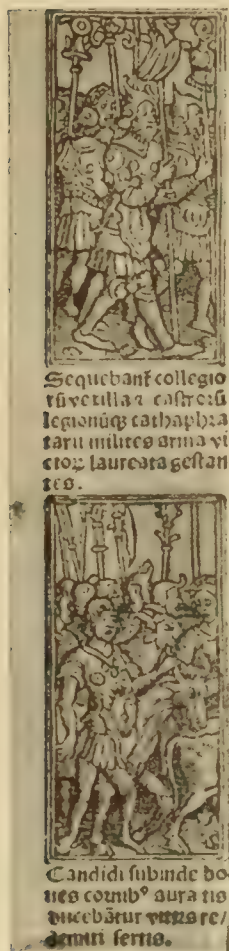 Sequebant̃ collegio
rũ vexilla ⁊ castrorũ
legionũq; cathaphra
tarii milites arma vi
ctoꝝ laureata gestan
tes.
Candidi subinde bo-
ues cornibꝰ aura tis
ducebãtur vittis re/
demiti sertis.